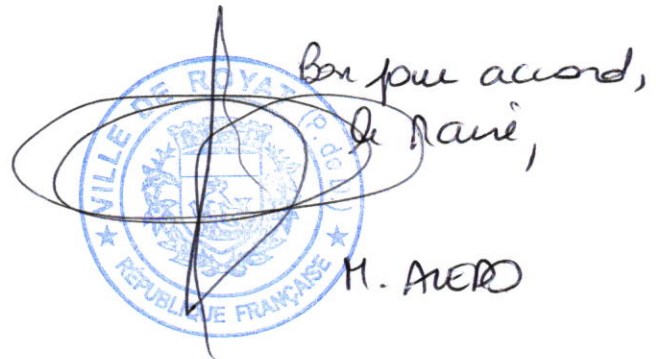 Bon pour accord,
le Maire,
M. ALEDO
VILLE DE ROYAT (P.de D.)
RÉPUBLIQUE FRANÇAISE